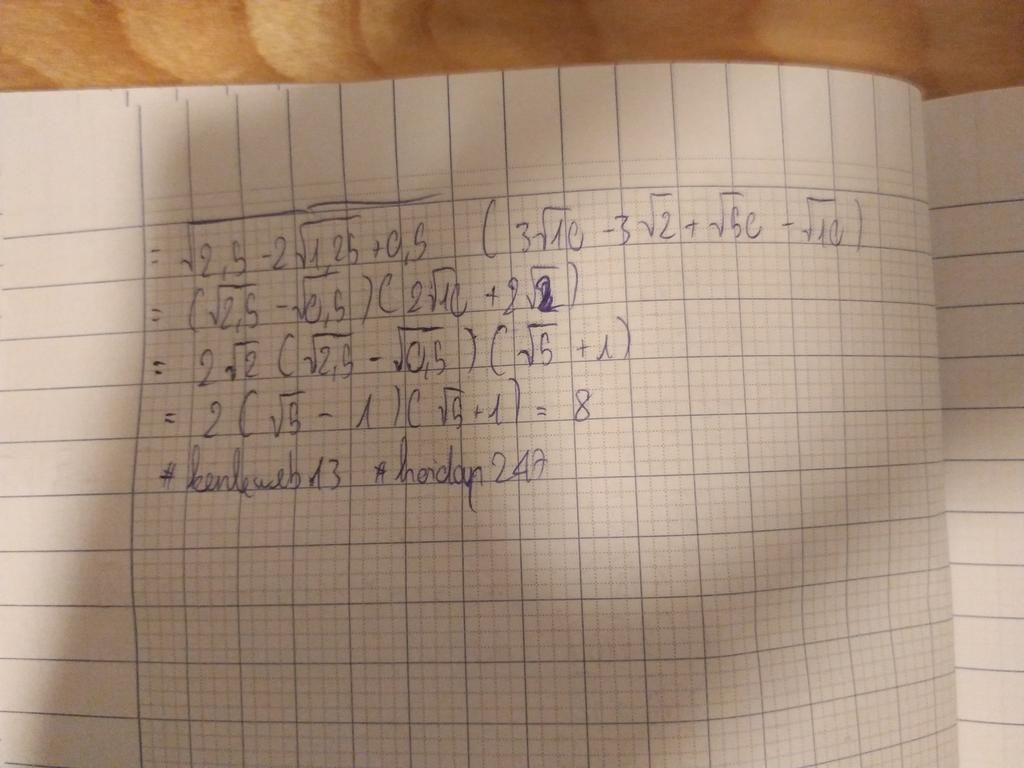 = √(2,5 - 2√1,25 + 0,5) (3√10 - 3√2 + √50 - √10)
= (√2,5 - √0,5)(2√10 + 2√2)
= 2√2 (√2,5 - √0,5)(√5 + 1)
= 2(√5 - 1)(√5 + 1) = 8
#hoidap247